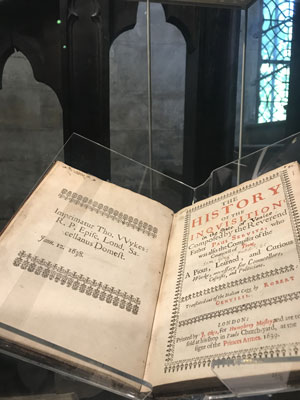 Imprimatur Tho. VVykes:
R. P. Episc. Lond. Sa-
cellanus Domest.
Jun. 12. 1638.
THE
HISTORY
OF THE
INQUISITION:
Composed by the Reverend
Father PAUL SERVITA,
was also the Compiler of the
Councell of Trent.
A Pious, Learned, and Curious
Worke, necessary for Councellors,
Casuists, and Politicians.
Translated out of the Italian Copy by ROBERT
GENTILIS.
LONDON:
Printed by J. Okes, for Humphrey Mosley and are to
sold at his shop in Pauls Churchyard, at the
signe of the Princes Armes. 1639.